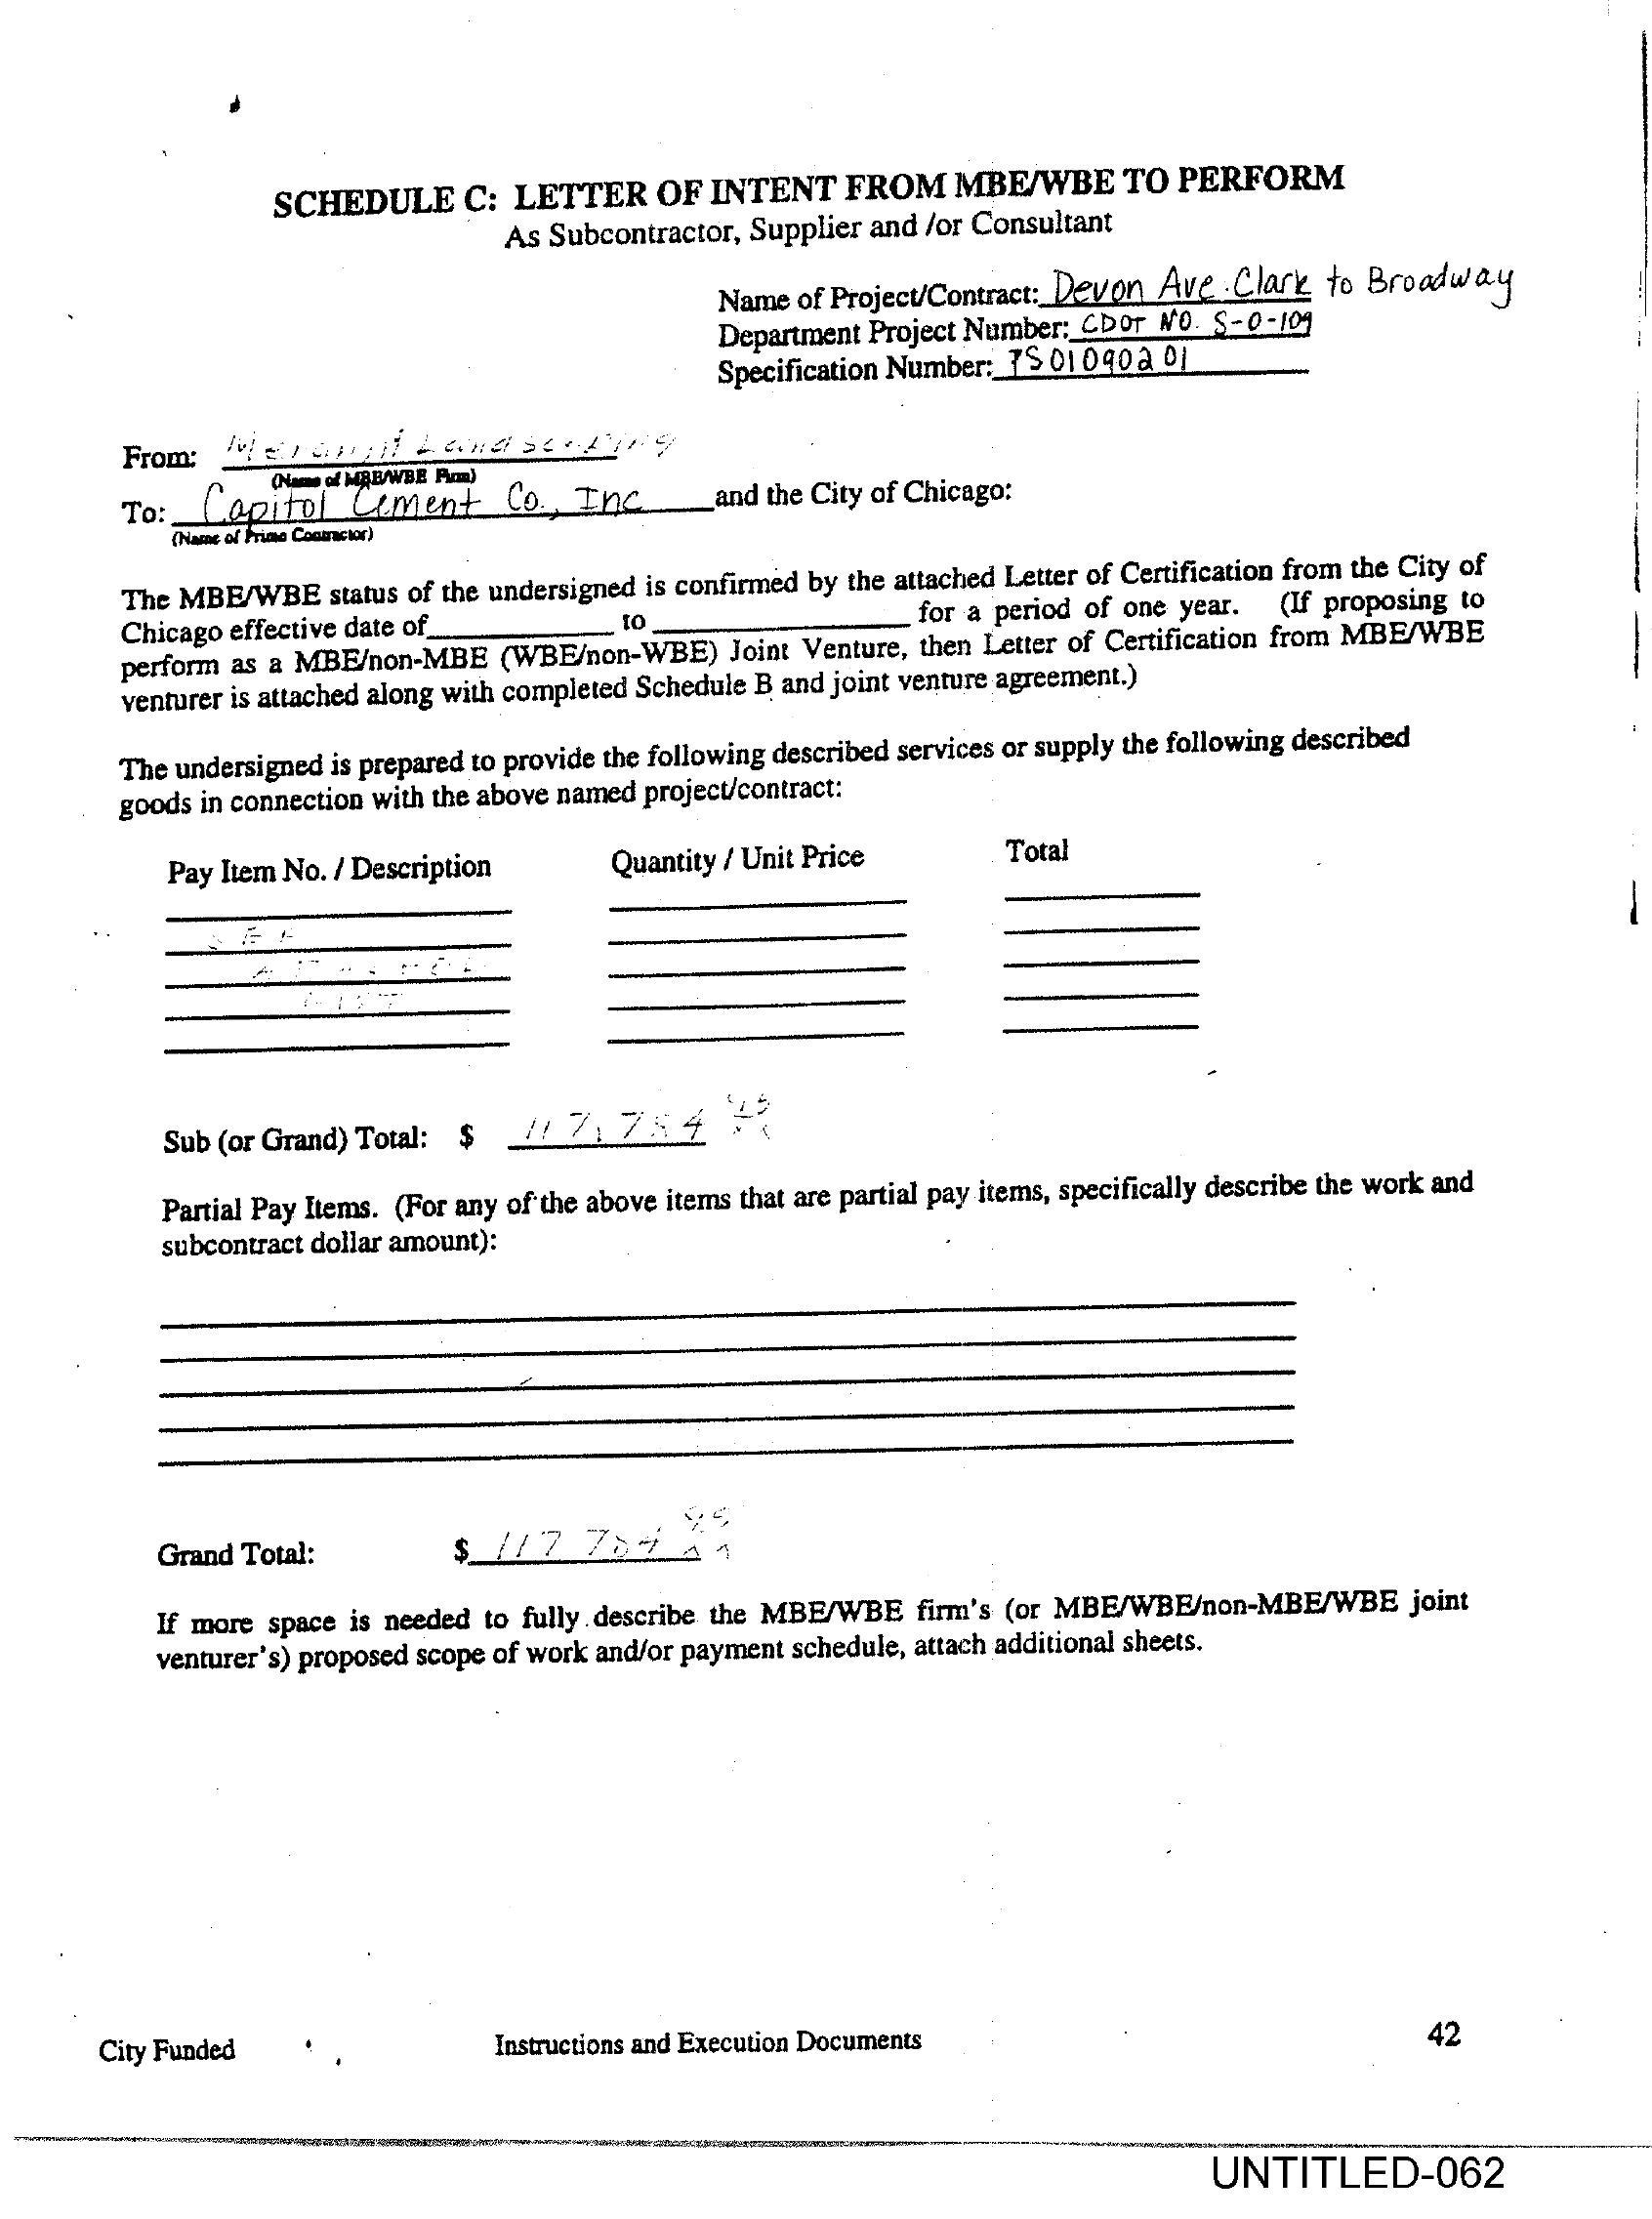 SCHEDULE C: LETTER OF INTENT FROM MBE/WBE TO PERFORM
As Subcontractor, Supplier and /or Consultant
Name of Project/Contract: Devon Ave. Clark to Broadway
Department Project Number: CDOT NO. S-0-109
Specification Number: 7S01090201
From: Landscaping
(Name of MBE/WBE Firm)
To: Capitol Cement Co., Inc and the City of Chicago:
(Name of Prime Contractor)
The MBE/WBE status of the undersigned is confirmed by the attached Letter of Certification from the City of
Chicago effective date of to for a period of one year. (If proposing to
perform as a MBE/non-MBE (WBE/non-WBE) Joint Venture, then Letter of Certification from MBE/WBE
venturer is attached along with completed Schedule B and joint venture agreement.)
The undersigned is prepared to provide the following described services or supply the following described
goods in connection with the above named project/contract:
Pay Item No. / Description Quantity / Unit Price Total
Sub (or Grand) Total: $ 117,784
Partial Pay Items. (For any of the above items that are partial pay items, specifically describe the work and
subcontract dollar amount):
Grand Total: $ 117 784
If more space is needed to fully describe the MBE/WBE firm's (or MBE/WBE/non-MBE/WBE joint
venturer's) proposed scope of work and/or payment schedule, attach additional sheets.
City Funded Instructions and Execution Documents 42
UNTITLED-062